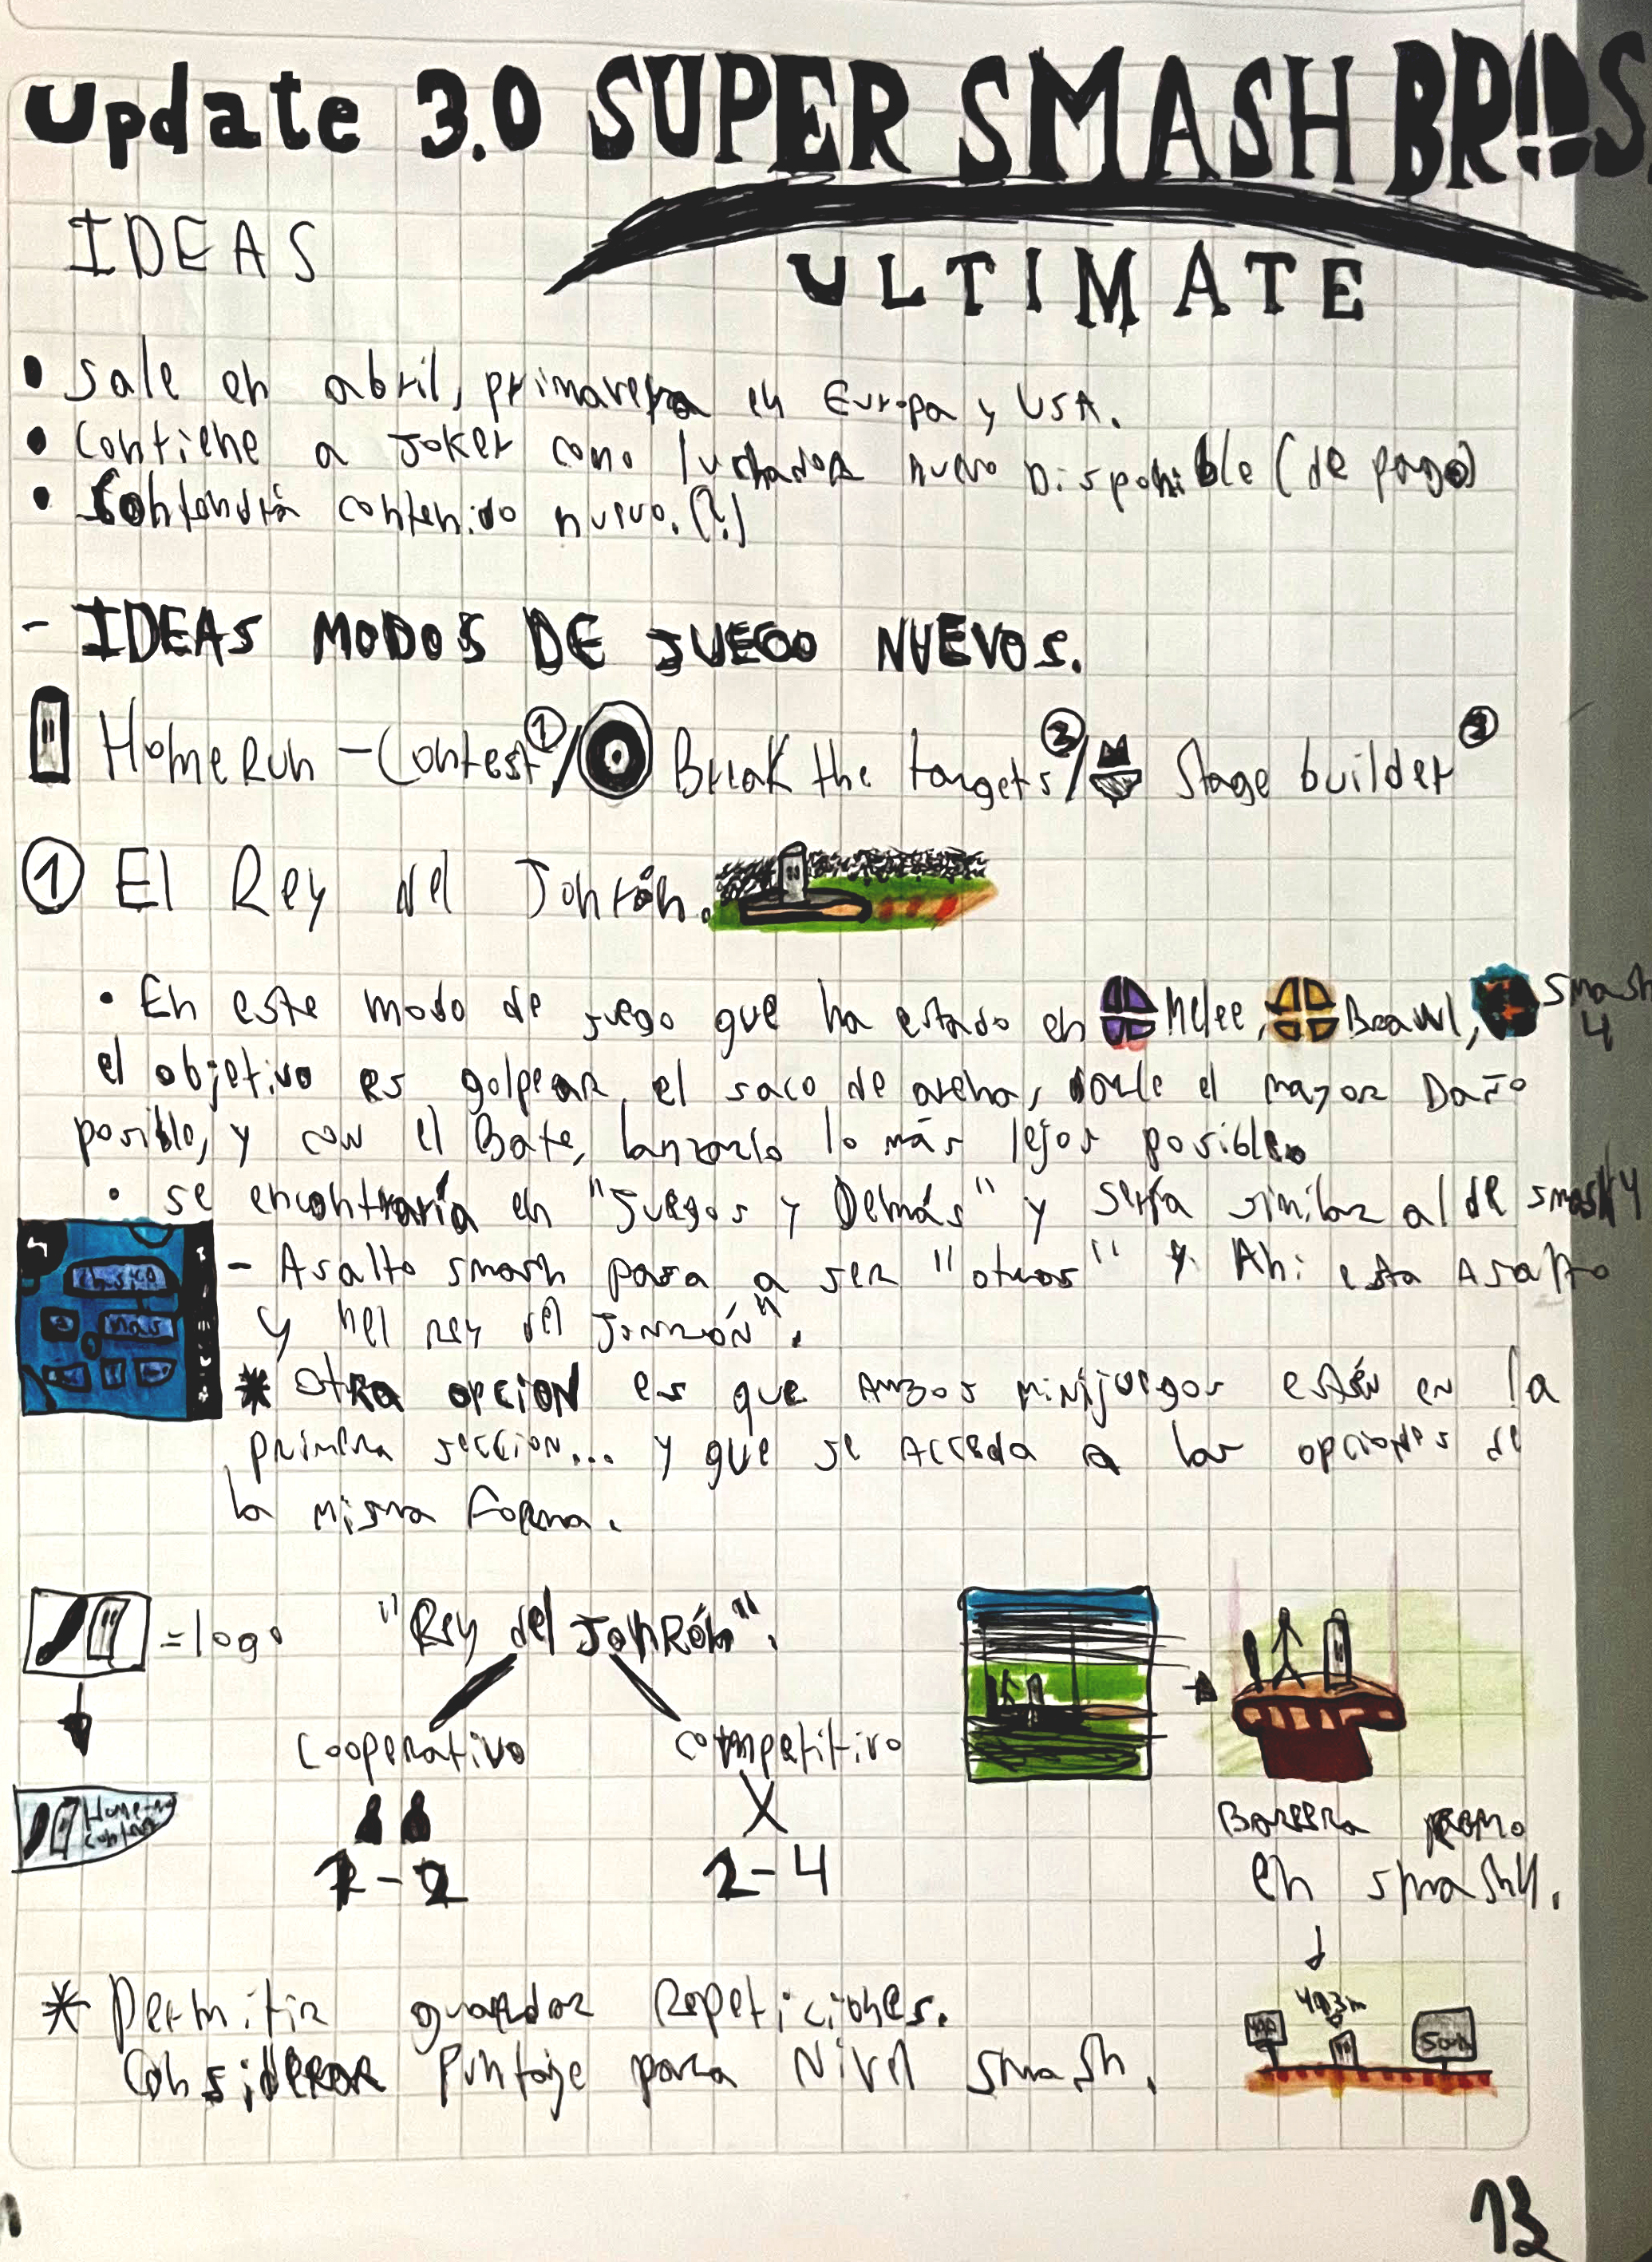 Update 3.0 SUPER SMASH BROS.
ULTIMATE
IDEAS
• Sale en abril, primavera en Europa y USA.
• Contiene a Joker como luchador nuevo Disponible (de pago)
• Contendrá contenido nuevo. (?)
- IDEAS MODOS DE JUEGO NUEVOS.
HomeRun-Contest ① / Break the targets ② / Stage builder ③
① El Rey del Jonrón.
• En este modo de juego que ha estado en Melee, Brawl, Smash 4
el objetivo es golpear el saco de arena, darle el mayor Daño
posible, y con el Bate, lanzarlo lo más lejos posible.
• se encontraría en "Juegos y Demás" y sería similar al de smash 4
Clásico
Más
- Asalto smash pasa a ser "otros" y Ahi esta Asalto
y "el rey del Jonrón".
* Otra opcion es que ambos minijuegos estén en la
primera seccion... y que se acceda a las opciones de
la misma forma.
= logo
"Rey del Jonrón".
Cooperativo
competitivo
Home-run
contest
1-2
2-4
Barrera como
en smash4.
* Permitir guardar Repeticiones.
Considerar Puntaje para Nivel smash.
493m
500m
13